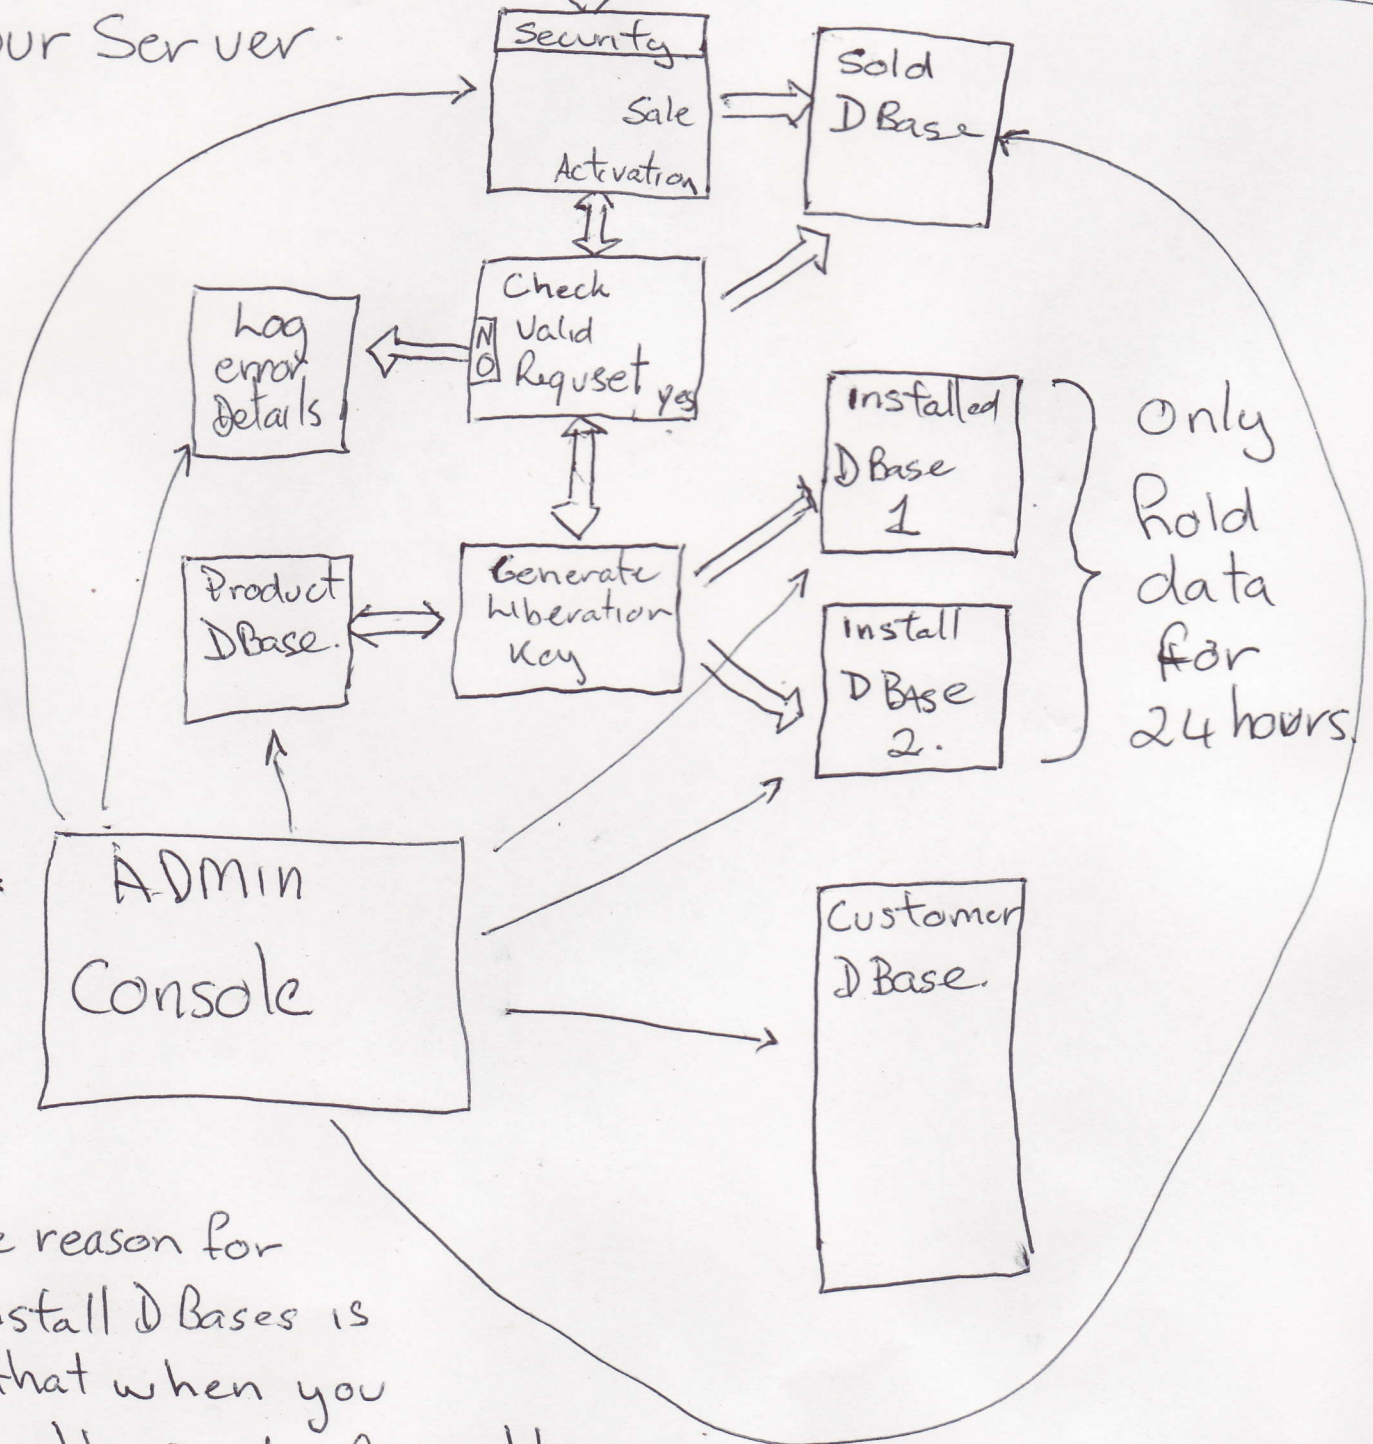 our Server.
Security
Sale
Activation
Sold
DBase
Check
Valid
Requset
NO
yes
Log
error
Details
Installed
DBase
1
Only
hold
data
for
24 hours.
Product
DBase.
Generate
Liberation
Key
install
DBase
2.
ADMin
Console
Customer
DBase.
reason for
DBases is
that when you